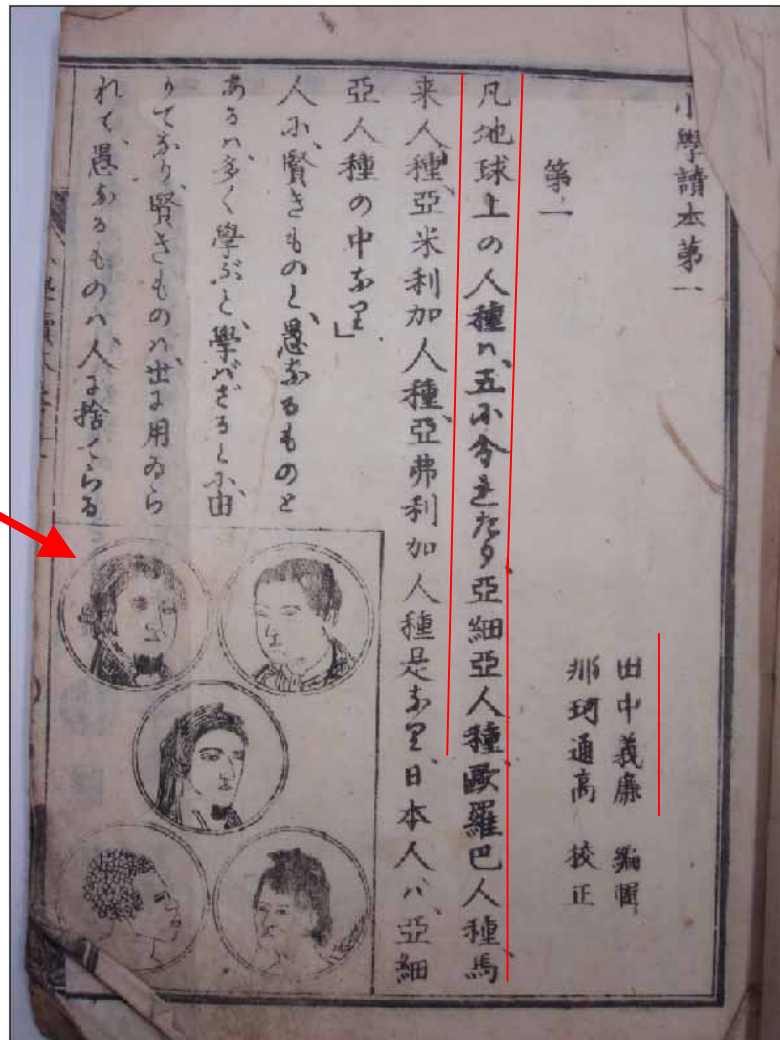 小學讀本第一
田中義廉 編輯
那珂通高 校正
第一
凡地球上の人種ハ、五に分れたり、亞細亞人種、歐羅巴人種、馬
来人種、亞米利加人種、亞弗利加人種是なり、日本人ハ、亞細
亞人種の中なり」
人に、賢きものと、愚なるものと
あるハ、多く學ぶと、學バざるとに、由
りてなり、賢きものハ、世に用ゐら
れて、愚なるものハ、人に捨てらる